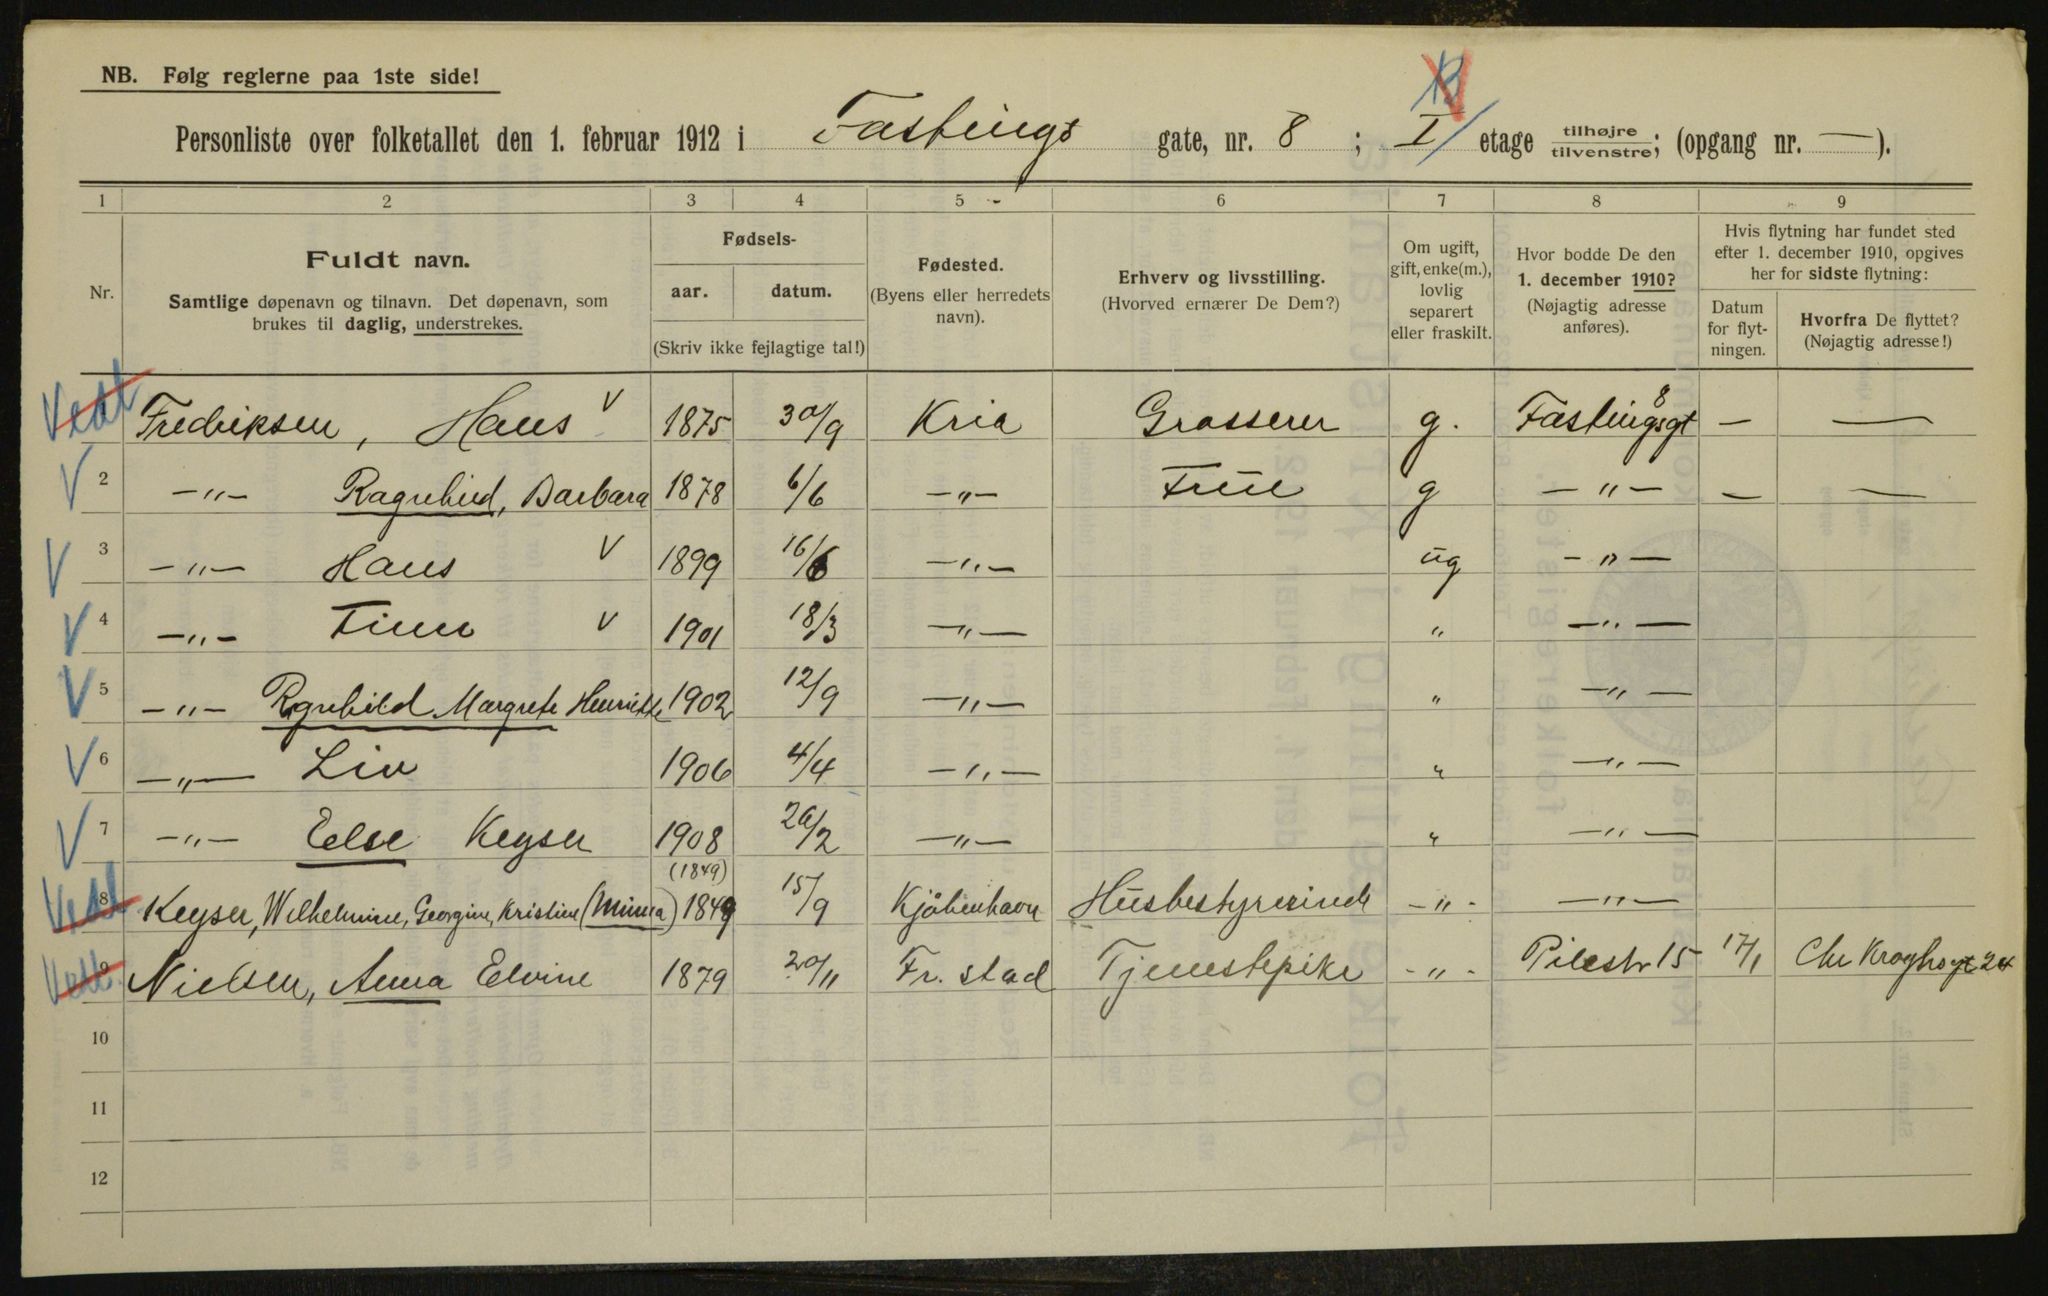 NB. Følg reglerne paa 1ste side!
Personliste over folketallet den 1. februar 1912 i Fastings gate, nr. 8 ; I etage tilhøjre tilvenstre; (opgang nr. — ).
1 2 3 4 5 6 7 8 9
Nr.
Fuldt navn.
Samtlige døpenavn og tilnavn. Det døpenavn, som
brukes til daglig, understrekes.
Fødsels-
aar. datum.
(Skriv ikke fejlagtige tal!)
Fødested.
(Byens eller herredets
navn).
Erhverv og livsstilling.
(Hvorved ernærer De Dem?)
Om ugift,
gift, enke(m.),
lovlig
separert
eller fraskilt.
Hvor bodde De den
1. december 1910?
(Nøjagtig adresse
anføres).
Hvis flytning har fundet sted
efter 1. december 1910, opgives
her for sidste flytning:
Datum
for flyt-
ningen.
Hvorfra De flyttet?
(Nøjagtig adresse!)
Fredriksen, Hans V 1875 30/9 Kria Grosserer g. Fastingsgt 8 — —
V 2 —"— Ragnhild, Barbara 1878 6/6 —"— Frue g —"— — —
V 3 —"— Hans V 1899 16/6 —"— ug —"—
V 4 —"— Finn V 1901 18/3 —"— " —"—
V 5 —"— Ragnhild Margrete Henriette 1902 12/9 —"— " —"—
V 6 —"— Liv 1906 4/4 —"— " —"—
V 7 —"— Else Keyser 1908 /2 —"— " —"—
(1849)
8 Keyser, Wilhelmine, Georgine, Kristine (Minna) 1849 15/9 Kjøbenhavn Husbestyrerinde —"— —"—
9 Nielsen, Anna Elvine 1879 20/11 Fr. stad Tjenestepike —"— Pilestr 15 17/1 Chr Kroghsgt 24
10
11
12